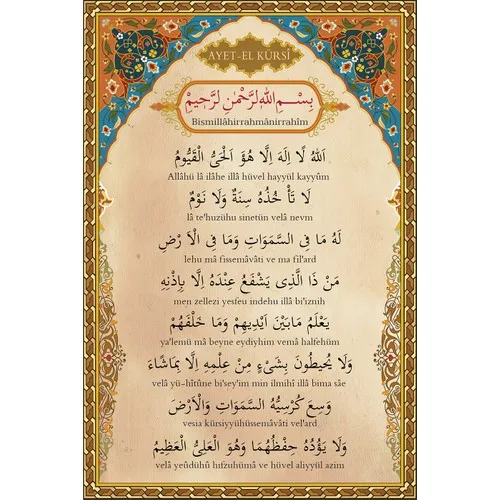 AYET-EL KÜRSÎ
بِسْــمِ اللهِ لرَّحْمٰنِ لرَّحِيمْ
Bismillâhirrahmânirrahîm
اَللهُ لَا اِلَهَ اِلَّا هُوَ اَلْحَيُّ الْقَيُّومُ
Allâhü lâ ilâhe illâ hüvel hayyül kayyûm
لَا تَأْ خُذُهُ سِنَةٌ وَلَا نَوْمٌ
lâ te'huzühu sinetün velâ nevm
لَهُ مَا فِى السَّمَوَاتِ وَمَا فِى الْاَ رْضِ
lehu mâ fissemâvâti ve ma fil'ard
مَنْ ذَا الَّذِى يَشْفَعُ عِنْدَهُ اِلَّا بِاِذْنِهِ
men zellezi yesfeu indehu illâ bi'iznih
يَعْلَمُ مَابَيْنَ اَيْدِيهِمْ وَمَا خَلْفَهُمْ
ya'lemü mâ beyne eydiyhim vemâ halfehüm
وَلَا يُحِيطُونَ بِشَىْءٍ مِنْ عِلْمِهِ اِلَّا بِمَاشَاءَ
velâ yü-hîtûne bi'sey'im min ilmihî illâ bima sâe
وَسِعَ كُرْسِيُّهُ السَّمَوَاتِ وَالْاَرْضَ
vesia kürsiyyühüssemâvâti vel'ard
وَلَا يَؤُدُهُ حِفْظُهُمَا وَهُوَ الْعَلِىُّ الْعَظِيمُ
velâ yeûdühû hıfzuhümâ ve hüvel aliyyül azim